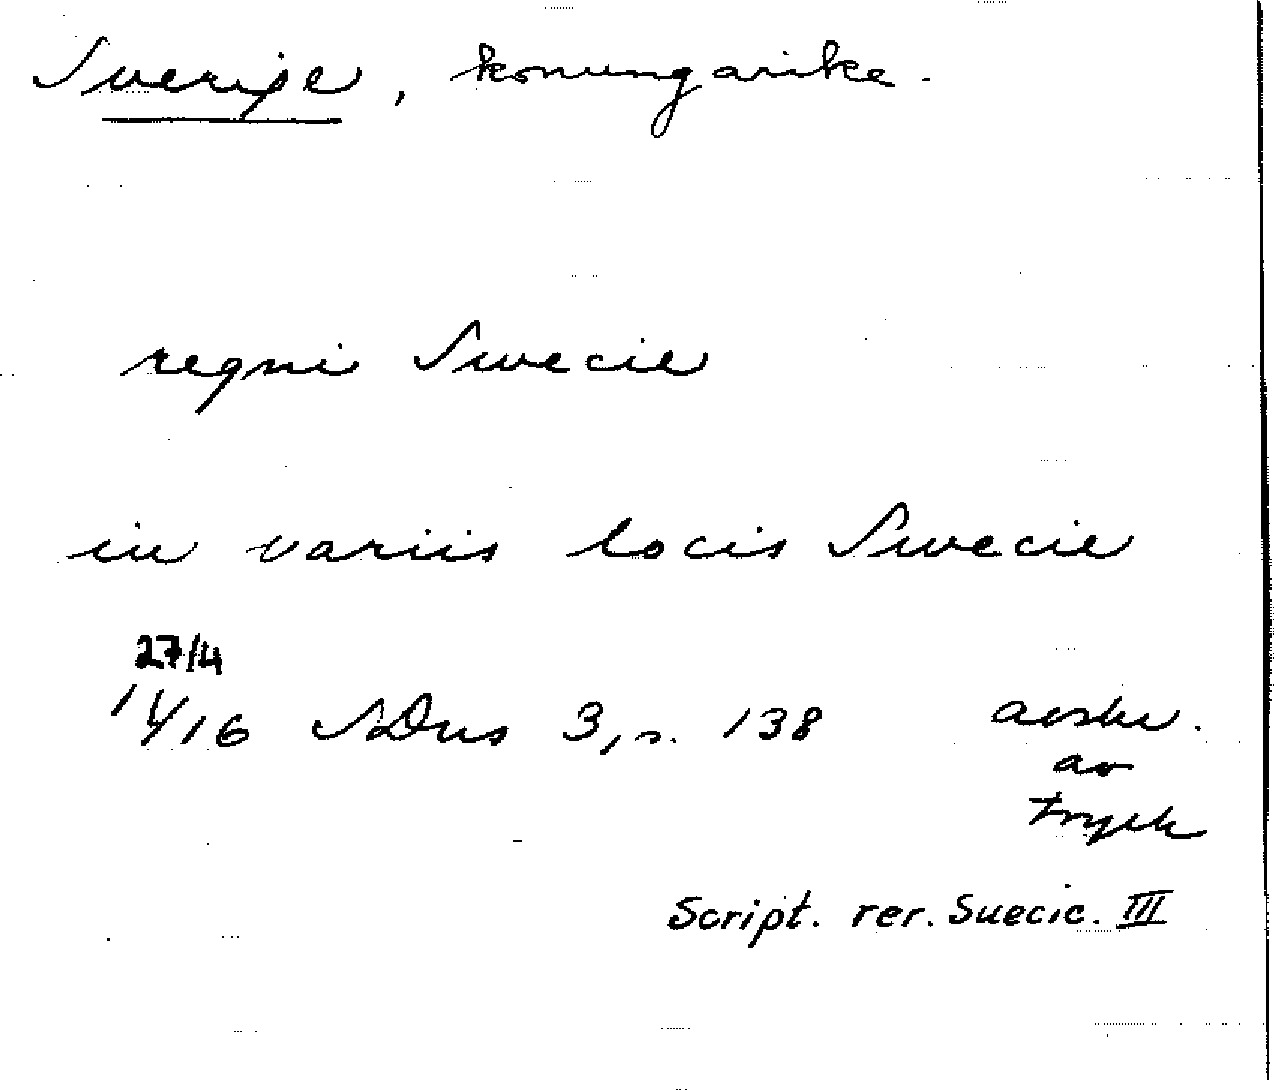 Sverige, konungarike.
regni Swecie
in variis locis Swecie
27/4
14/16 SDns 3, s. 138 avskr.
av
tryck
Script. rer. Suecic. III